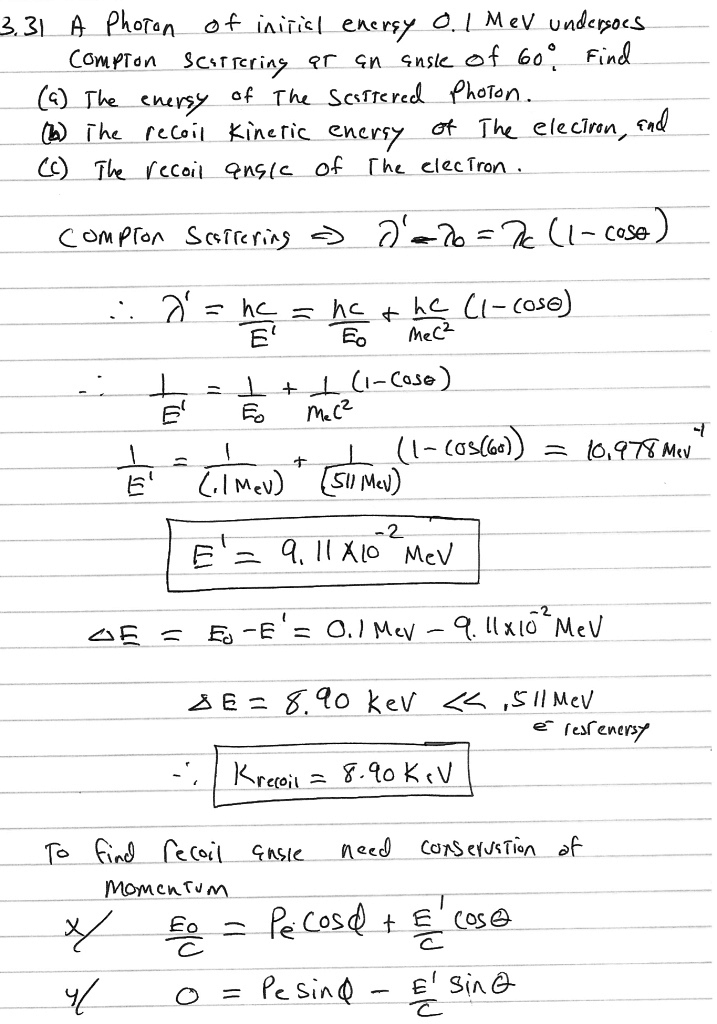 3.31 A Photon of initial energy 0.1 MeV undergoes
Compton Scattering at an angle of 60°. Find
(a) The energy of The Scattered Photon.
(b) The recoil Kinetic energy of The electron, and
(c) The recoil angle of The electron.
Compton Scattering ⇒ λ' - λ0 = λc (1 - cosθ)
∴ λ' = hc/E' = hc/E0 + hc/MeC² (1 - cosθ)
∴ 1/E' = 1/E0 + 1/MeC² (1 - cosθ)
1/E' = 1/(.1 MeV) + 1/(.511 MeV) (1 - cos(60)) = 10.978 MeV⁻¹
E' = 9.11 X10⁻² MeV
ΔE = E0 - E' = 0.1 MeV - 9.11x10⁻² MeV
ΔE = 8.90 KeV << .511 MeV
e⁻ rest energy
∴ Krecoil = 8.90 KeV
To find recoil angle need conservation of
Momentum
x/ E0/C = Pe cosφ + E'/C cosθ
y/ 0 = Pe sinφ - E'/C sinθ